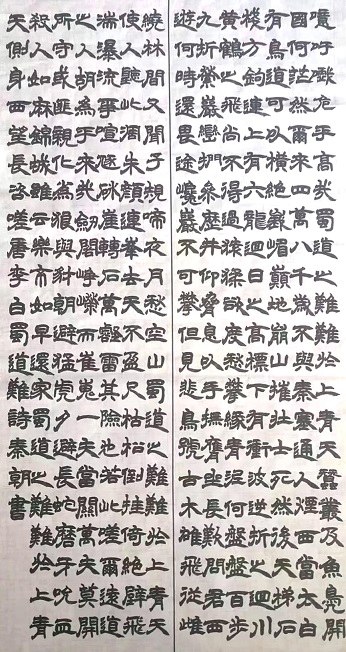 噫吁戲危乎高哉蜀道之難難於上青天蠶叢及魚鳧開
國何茫然爾來四萬八千歲不與秦塞通人煙西當太白
有鳥道可以橫絕峨嵋巔地崩山摧壯士死然後天梯石
棧方鉤連上有六龍迴日之高標下有衝波逆折之迴川
黃鶴之飛尚不得過猿猱欲度愁攀緣青泥何盤盤百步
九折縈巖巒捫參歷井仰脅息以手撫膺坐長歎問君西
遊何時還畏途巉巖不可攀但見悲鳥號古木雄飛從雌
繞林間又聞子規啼夜月愁空山蜀道之難難於上青天
使人聽此凋朱顏連峰去天不盈尺枯松倒挂倚絕壁飛
湍瀑流爭喧豗砯崖轉石萬壑雷其險也若此嗟爾遠道
之人胡為乎來哉劍閣崢嶸而崔嵬一夫當關萬夫莫開
所守或匪親化為狼與豺朝避猛虎夕避長蛇磨牙吮血
殺人如麻錦城雖云樂不如早還家蜀道之難難於上青
天側身西望長咨嗟唐李白蜀道難詩秦朝書